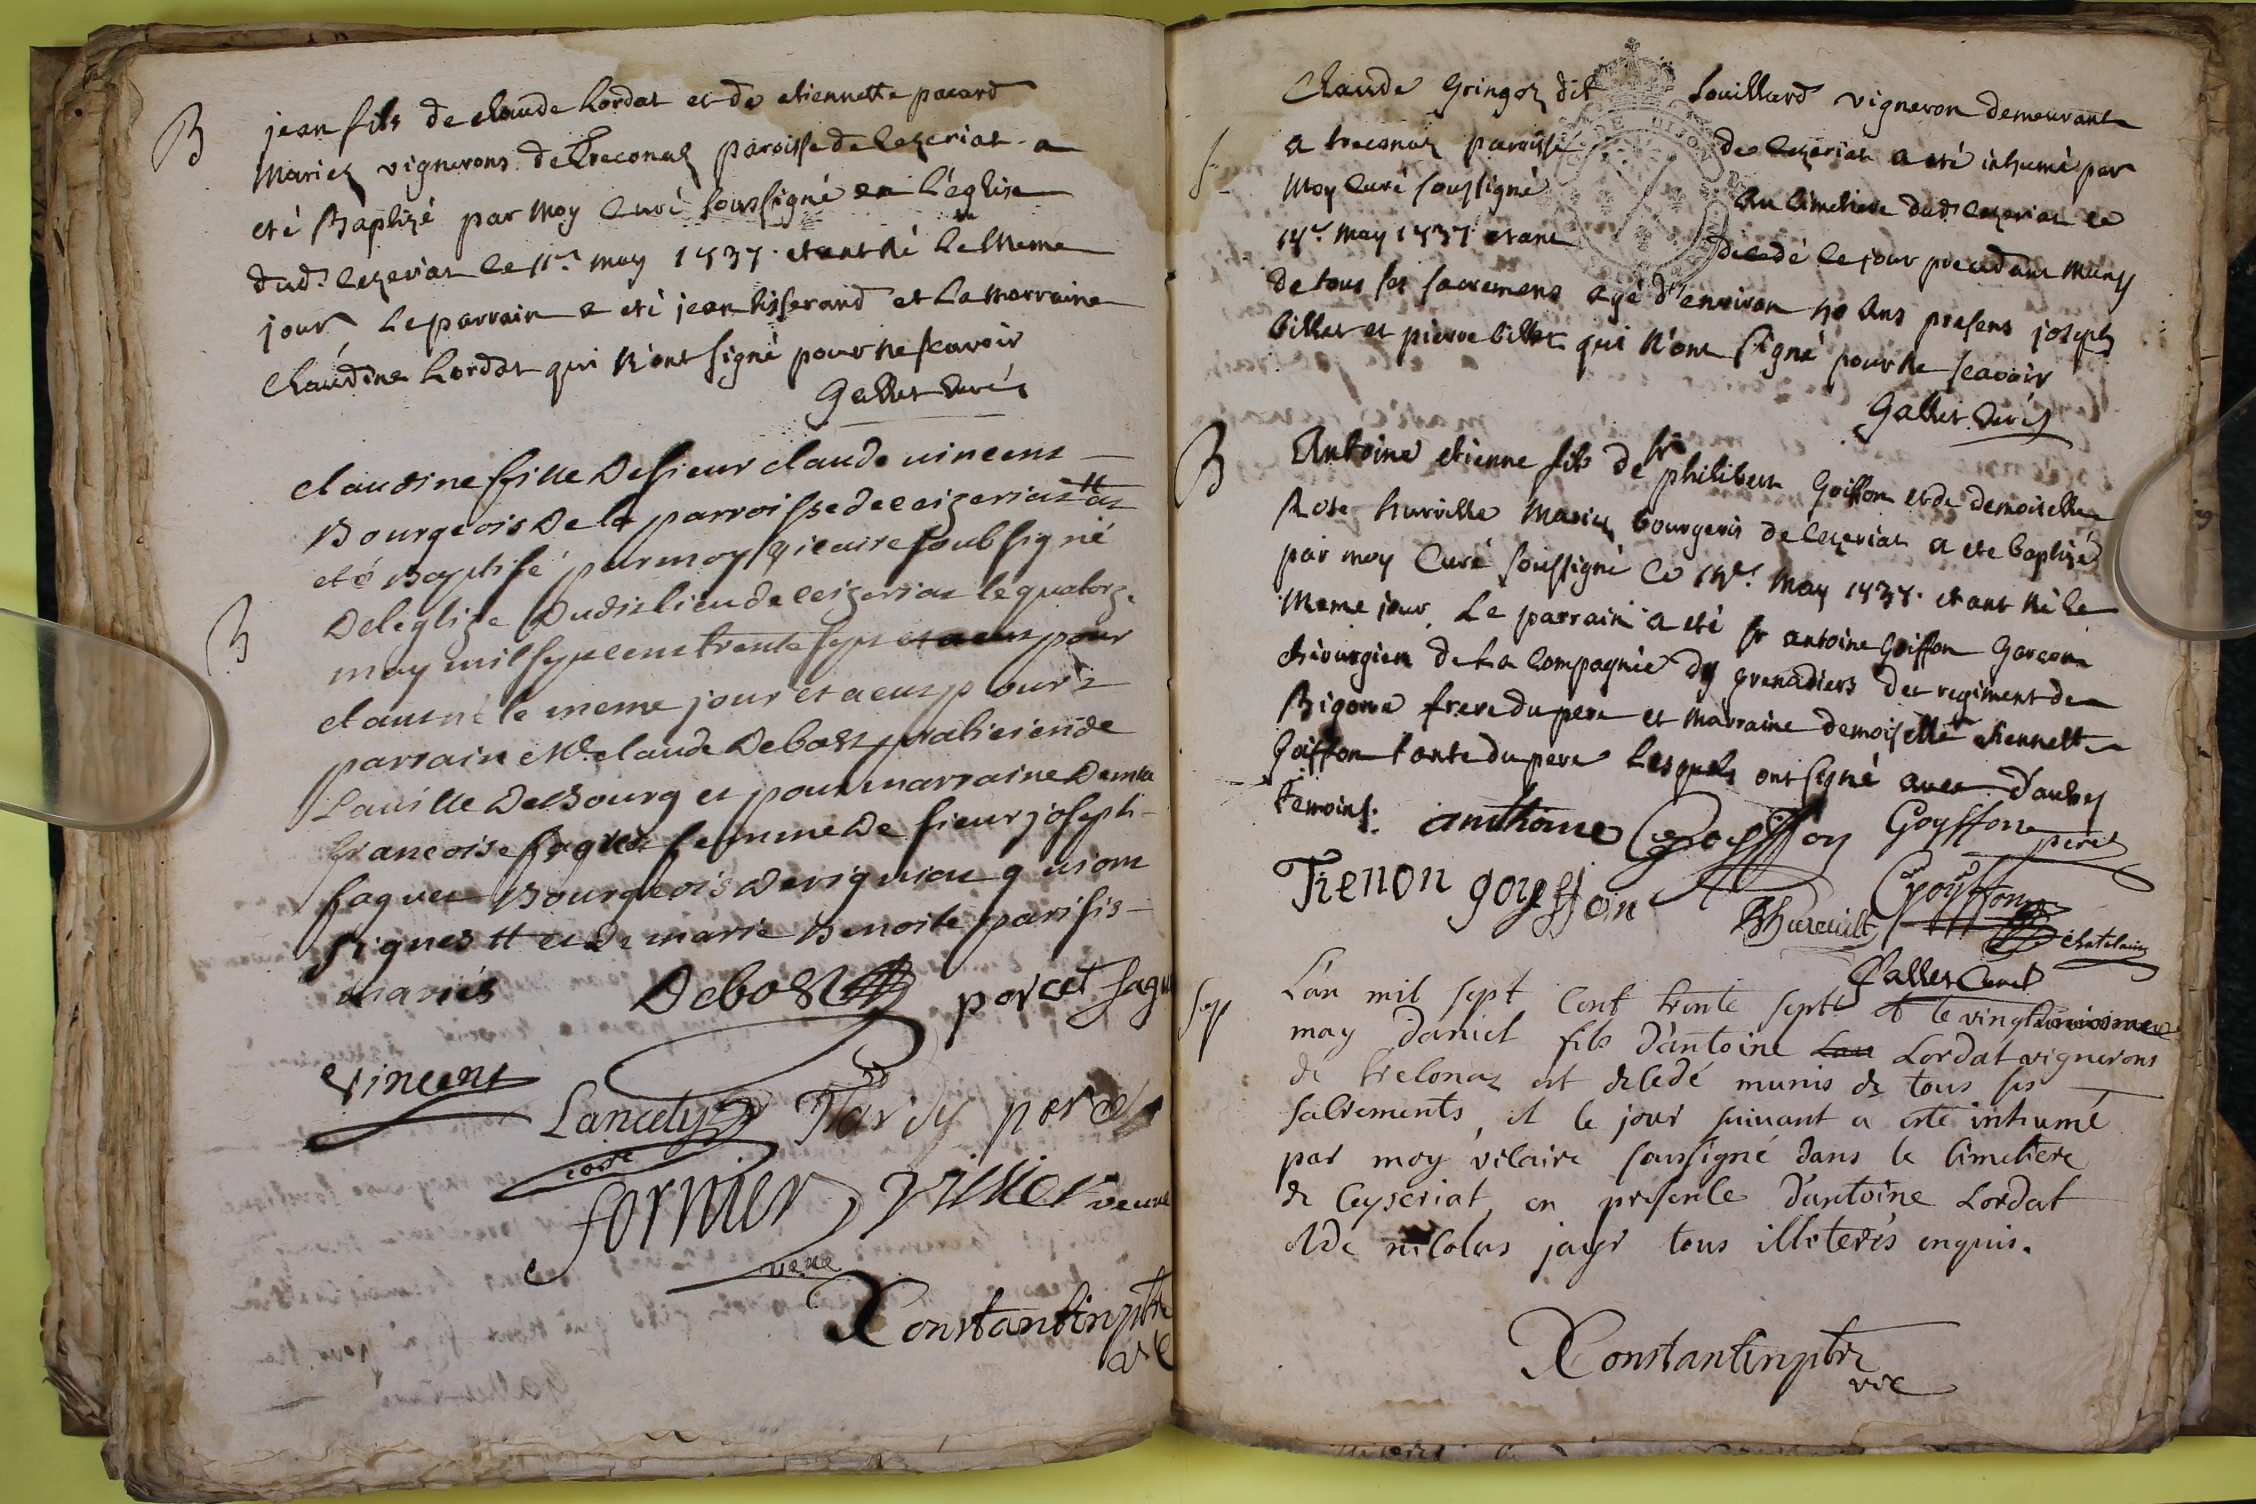 B
jean fils de claude Lordat et de etiennette pacard
Mariez vignerons de Treconaz paroisse de Cezeriat a
eté Baptizé par moy Curé soussigné en L'eglise
dud. Cezeriat le 11e. may 1737. etant Né Le Meme
jour, Le parrain a eté jean tisserand et La Marraine
Claudine Lordat qui N'ont signé pour ne scavoir
Gallet Curé
B
claudine fille De sieur claude vincent
Bourgeois De la parroisse de ceizeriat # at
eté Baptisé par moy vicaire soubsigné
De leglize Dudit lieu de ceizeriat le quatorze
may mil sept cent trente sept et a eut pour
etant né le meme jour et a eut pour
parrain Me. claude Debost praticien de
La ville De Bourg et pour marraine Demlle
francoise faguet femme De sieur joseph
faguet Bourgeois De rigniat qui ont
signes # et De marie Benoite parisis
mariés
Debost porcet fagu
vincent
Lancety Tardy porcet
fornier villier veuve
Constantin ptre
vic
S
Claude Gringoz dit Louillard vigneron demeurant
a treconaz paroisse de Cezeriat a eté inhumé par
Moy Curé soussigné au Cimetiere dud. Cezeriat le
14e. May 1737 etant decedé le jour precedant Muny
de tous ses sacremens agé d'environ 40 ans presens joseph
billet et pierre billet qui N'ont signé pour Ne scavoir
Gallet Curé
B
Antoine etienne fils de sr philibert Goiffon et de demoiselle
Rose hurville Mariez bourgeois de Cezeriat a ete baptizé
par moy Curé soussigné le 14e. May 1737. etant Né le
Meme jour, Le parrain a eté sr antoine Goiffon Garcon
chirurgien de La Compagnie des grenadiers du regiment de
Bigorre frere du pere et Marraine demoiselle etiennette
Goiffon tante du pere Lesquels ont signé avec d'autres
temoins.
anthoine Goyffon Goyffon pere
Tienon goyeffon Goyffon
chatelain
Gallet Curé
Sep
L'an mil sept Cent trente sept et le vingt
may daniel fils d'antoine Lau Lordat vignerons
de treconaz est decedé munis de tous ses
sacrements, et le jour suivant a eté inhumé
par moy vicaire soussigné dans le cimetiere
de Ceyseriat en presence d'antoine Lordat
et de nicolas jayr tous illiterés enquis.
Constantin ptre
vic